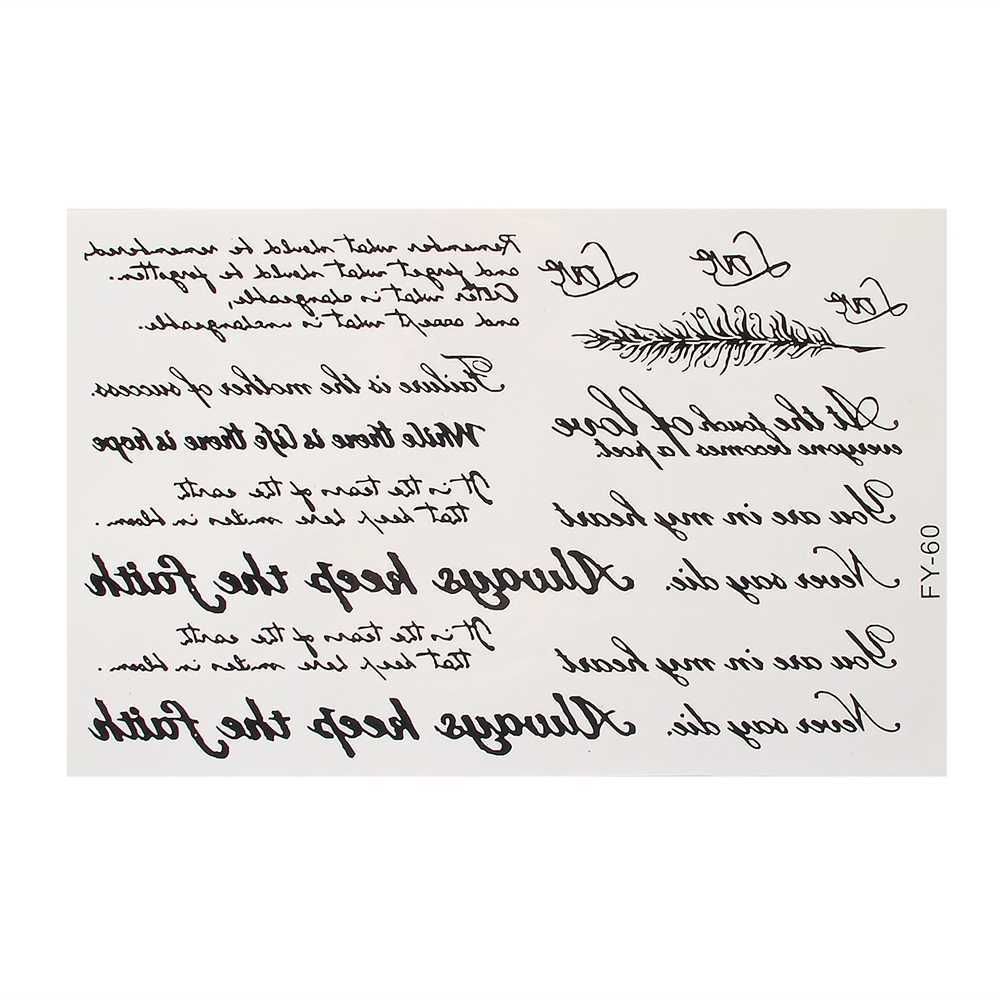 Love
Love
Love
Remember what should be remembered,
and forget what should be forgotten.
Alter what is changeable,
and accept what is unchangeable.
Failure is the mother of success.
While there is life there is hope
It is the tears of the earth
that keep here smiles in bloom.
Always keep the faith
It is the tears of the earth
that keep here smiles in bloom.
Always keep the faith
At the touch of love
everyone becomes a poet.
You are in my heart
Never say die.
You are in my heart
Never say die.
FY-60